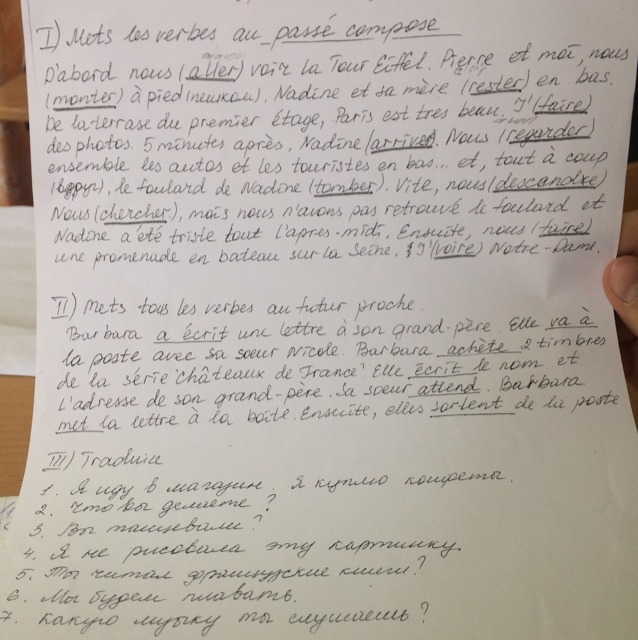 I) Mets les verbes au passé compose
D'abord nous (aller) voir la Tour Eiffel. Pierre et moi, nous
(monter) à pied (пешком). Nadine et sa mère (rester) en bas.
De la terrase du premier étage, Paris est très beau. J'(faire)
des photos. 5 minutes après, Nadine (arriver). Nous (regarder)
ensemble les autos et les touristes en bas... et, tout à coup
(вдруг), le foulard de Nadine (tomber). Vite, nous (descandre)
Nous (chercher), mais nous n'avons pas retrouvé le foulard et
Nadine a été triste tout l'après-midi. Ensuite, nous (faire)
une promenade en bateau sur la Seine. J'(voire) Notre-Dame.
II) Mets tous les verbes au futur proche.
Barbara a écrit une lettre à son grand-père. Elle va à
la poste avec sa soeur Nicole. Barbara achète 2 timbres
de la série 'châteaux de France'. Elle écrit le nom et
l'adresse de son grand-père. Sa soeur attend. Barbara
met la lettre à la boîte. Ensuite, elles sortent de la poste
III) Traduire
1. Я иду в магазин. Я куплю конфеты.
2. Что вы делаете?
3. Вы танцевали?
4. Я не рисовала эту картинку.
5. Ты читал французские книги?
6. Мы будем плавать.
7. Какую музыку ты слушаешь?